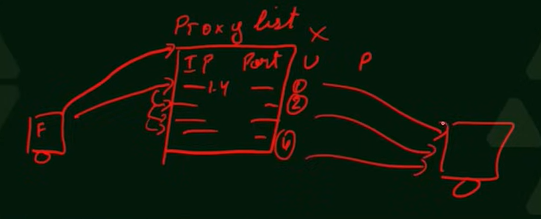 Proxy list X
IP Port U P
1.4 1
2
F